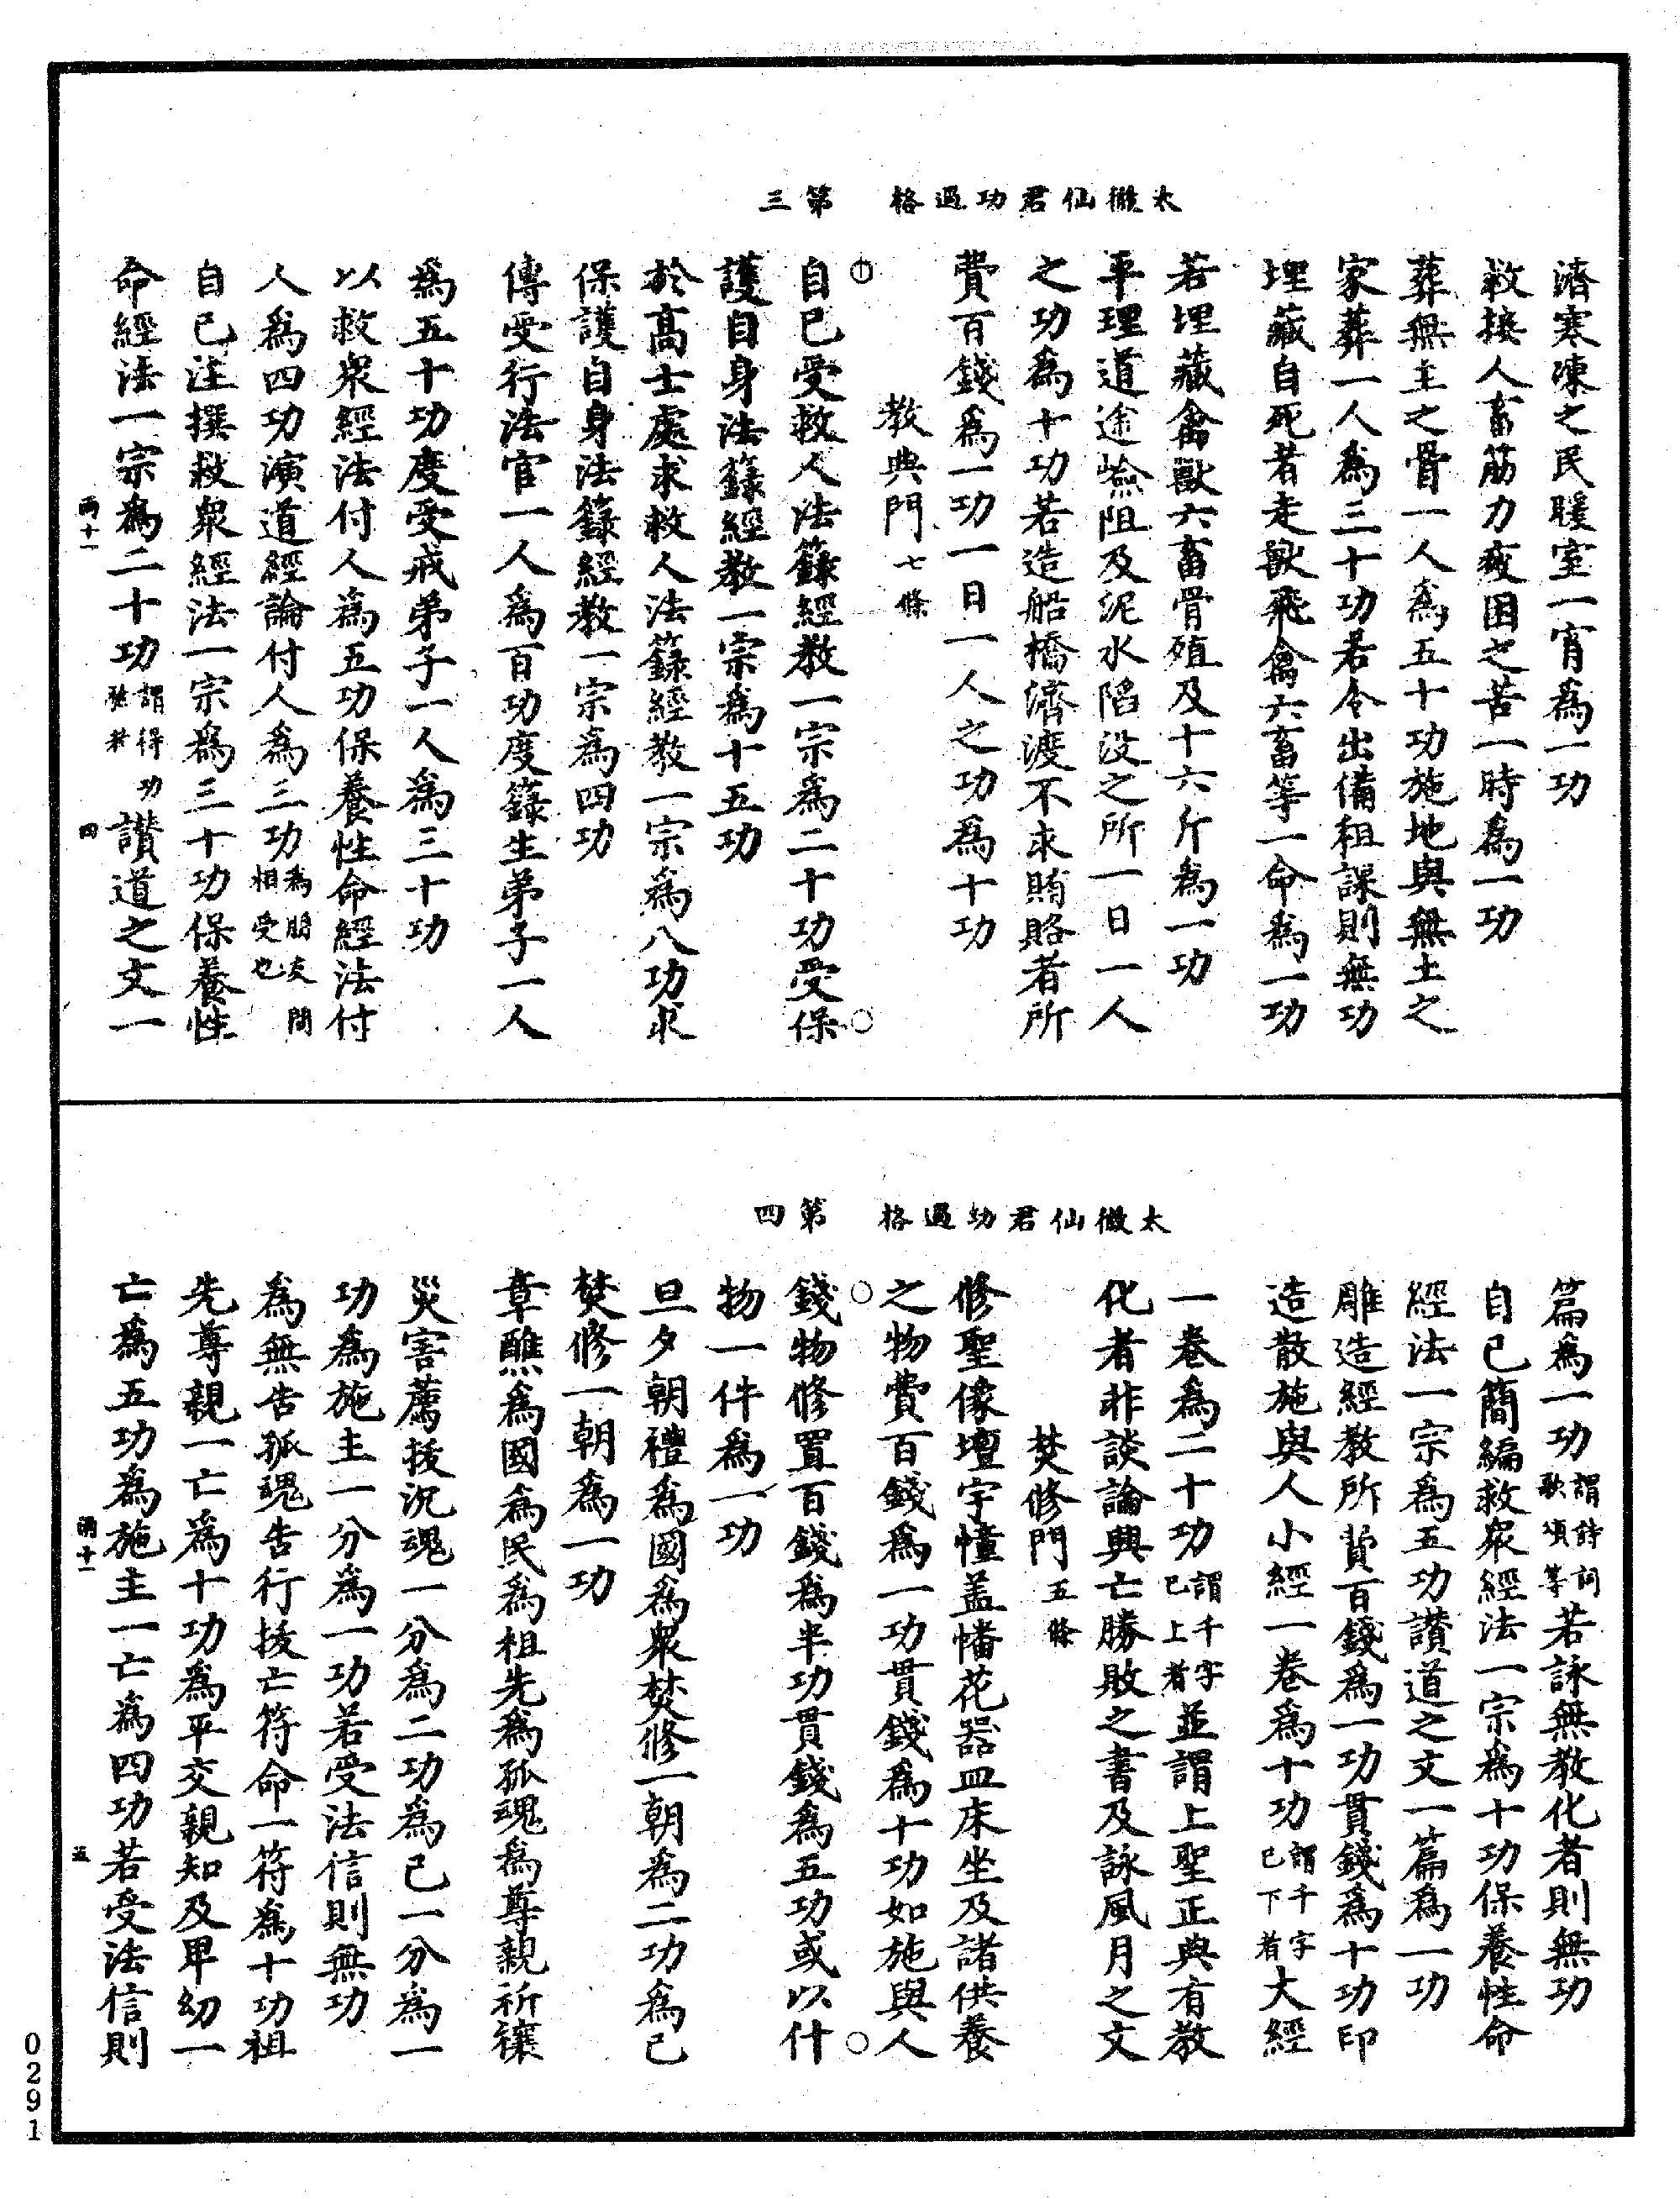 太微仙君功過格　第三
濟寒凍之民暖室一宵為一功
救接人畜筋力疲困之苦一時為一功
葬無主之骨一人為五十功施地與無土之
家葬一人為三十功若令出備租課則無功
埋藏自死者走獸飛禽六畜等一命為一功
若埋藏禽獸六畜骨殖及十六斤為一功
平理道途嶮阻及泥水陷沒之所一日一人
之功為十功若造船橋濟渡不求賄賂者所
費百錢為一功一日一人之功為十功
教典門七條
自己受救人法籙經教一宗為二十功受保
護自身法籙經教一宗為十五功
於高士處求救人法籙經教一宗為八功求
保護自身法籙經教一宗為四功
傳受行法官一人為百功度籙生弟子一人
為五十功度受戒弟子一人為三十功
以救衆經法付人為五功保養性命經法付
人為四功演道經論付人為三功為朋友間相受也
自己注撰救衆經法一宗為三十功保養性
命經法一宗為二十功謂得功驗者讚道之文一
兩十一　四
太微仙君功過格　第四
篇為一功謂詩詞歌頌等若詠無教化者則無功
自己簡編救衆經法一宗為十功保養性命
經法一宗為五功讚道之文一篇為一功
雕造經教所費百錢為一功貫錢為十功印
造散施與人小經一卷為十功謂千字已下者大經
一卷為二十功謂千字已上者並謂上聖正典有教
化者非談論興亡勝敗之書及詠風月之文
焚修門五條
修聖像壇宇幢盖幡花器皿床坐及諸供養
之物費百錢為一功貫錢為十功如施與人
錢物修置百錢為半功貫錢為五功或以什
物一件為一功
旦夕朝禮為國為衆焚修一朝為二功為己
焚修一朝為一功
章醮為國為民為祖先為孤魂為尊親祈禳
災害薦拔沉魂一分為二功為己一分為一
功為施主一分為一功若受法信則無功
為無告孤魂告行拔亡符命一符為十功祖
先尊親一亡為十功為平交親知及卑幼一
亡為五功為施主一亡為四功若受法信則
兩十一　五
0291